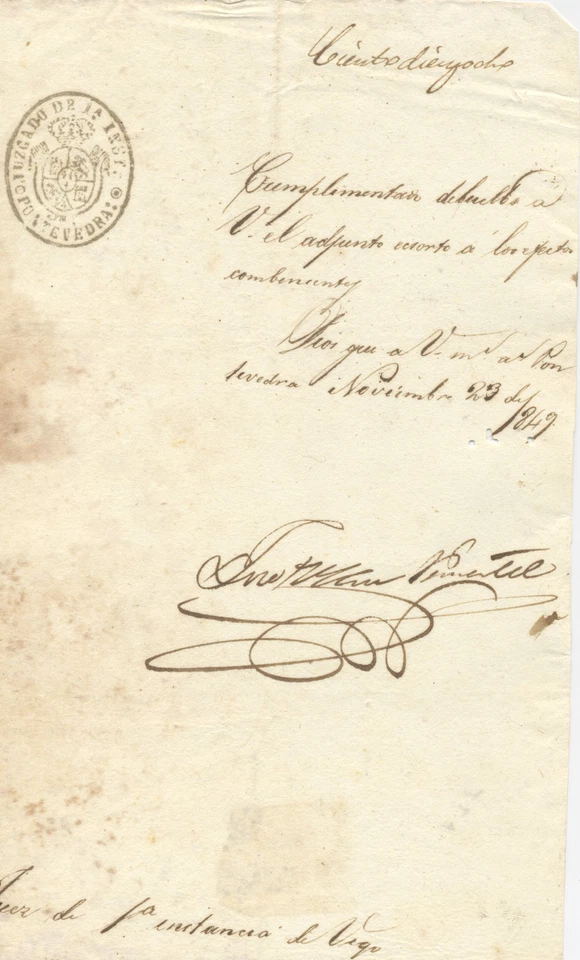 Ciento diez y ocho
JUZGADO DE 1ª INST.
PONTEVEDRA
Cumplimentado debuelbo a
V. el adjunto esorto a los efectos
combenientes
Dios gue a V. ms as Pon
tevedra Noviembre 23 de
1849.
Pimentel
Juez de 1ª instancia de Vigo